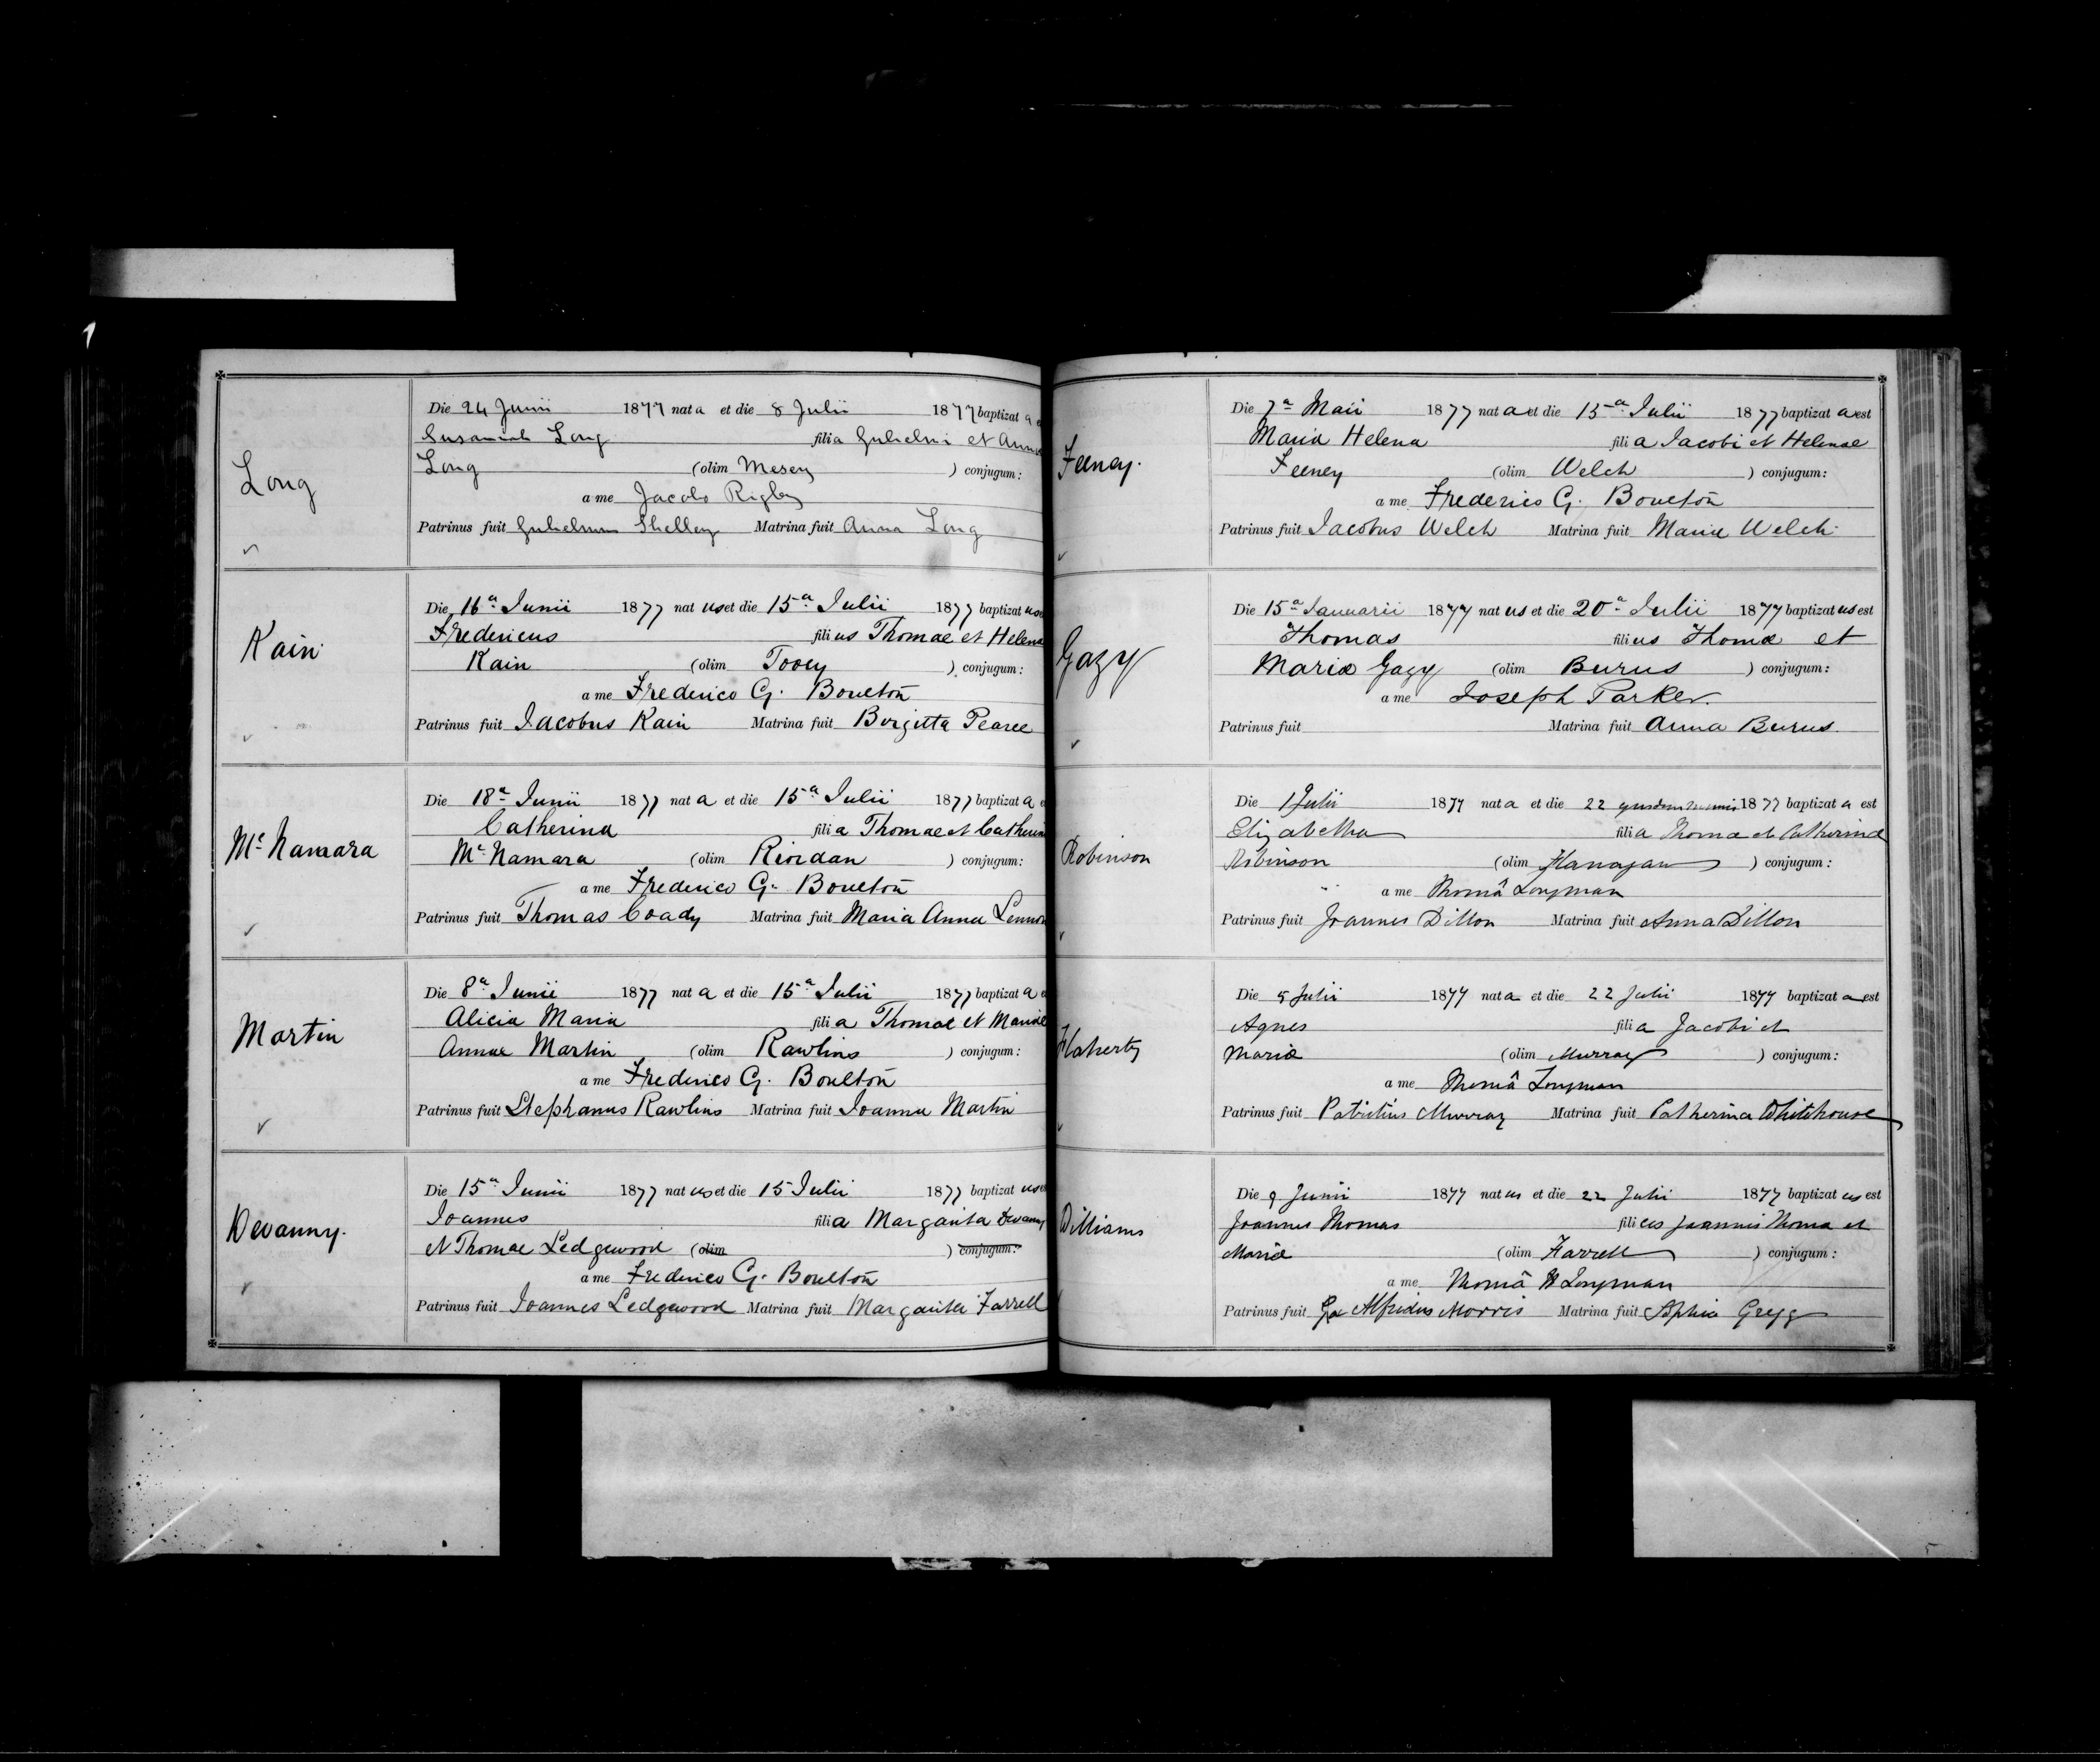 Long
Die 24 Junii 1877 nat a et die 8 Julii 1877 baptizat a
Susannah Long filia Gulielmi et Anna
Long (olim Mesey ) conjugum:
a me Jacobo Rigby
Patrinus fuit Gulielmus Shelley Matrina fuit Anna Long
Kain
Die 16a Junii 1877 nat us et die 15a Julii 1877 baptizat us
Fredericus filius Thomae et Helena
Kain (olim Tooey ) conjugum:
a me Frederico G. Boulton
Patrinus fuit Jacobus Kain Matrina fuit Birgitta Pearce
Mc Namara
Die 18a Junii 1877 nat a et die 15a Julii 1877 baptizat a
Catherina filia Thomae et Catherin
Mc Namara (olim Riordan ) conjugum:
a me Frederico G. Boulton
Patrinus fuit Thomas Coady Matrina fuit Maria Anna Lennon
Martin
Die 8a Junii 1877 nat a et die 15a Julii 1877 baptizat a
Alicia Maria filia Thomae et Mariae
Annae Martin (olim Rawlins ) conjugum:
a me Frederico G. Boulton
Patrinus fuit Stephanus Rawlins Matrina fuit Joanna Martin
Devanny.
Die 15a Junii 1877 nat us et die 15 Julii 1877 baptizat us
Joannes filia Margarita Devanny
et Thomae Ledgewood (olim ) conjugum:
a me Frederico G. Boulton
Patrinus fuit Joannes Ledgewood Matrina fuit Margarita Farrell
Feeney.
Die 7a Maii 1877 nat a et die 15a Julii 1877 baptizat a est
Maria Helena filia Jacobi et Helenae
Feeney (olim Welch ) conjugum:
a me Frederico G. Boulton
Patrinus fuit Jacobus Welch Matrina fuit Maria Welch
Gazy
Die 15a Januarii 1877 nat us et die 20a Julii 1877 baptizat us est
Thomas filius Thomæ et
Mariæ Gazy (olim Burus ) conjugum:
a me Joseph Parker.
Patrinus fuit Matrina fuit Anna Burus.
Robinson
Die 1 Julii 1877 nat a et die 22 ejusdem mensis 1877 baptizat a est
Elizabetha filia Thomæ et Catherinæ
Robinson (olim Flanagan ) conjugum:
a me Thomâ Longman
Patrinus fuit Joannes Dillon Matrina fuit Anna Dillon
Flaherty
Die 5 Julii 1877 nat a et die 22 Julii 1877 baptizat a est
Agnes filia Jacobi et
Mariæ (olim Murray ) conjugum:
a me Thomâ Longman
Patrinus fuit Patritius Murray Matrina fuit Catherina Whitehouse
Williams
Die 9 Junii 1877 nat us et die 22 Julii 1877 baptizat us est
Joannes Thomas filius Joannis Thoma et
Mariæ (olim Farrell ) conjugum:
a me Thomâ Longman
Patrinus fuit Alfridus Morris Matrina fuit Sophia Gregg